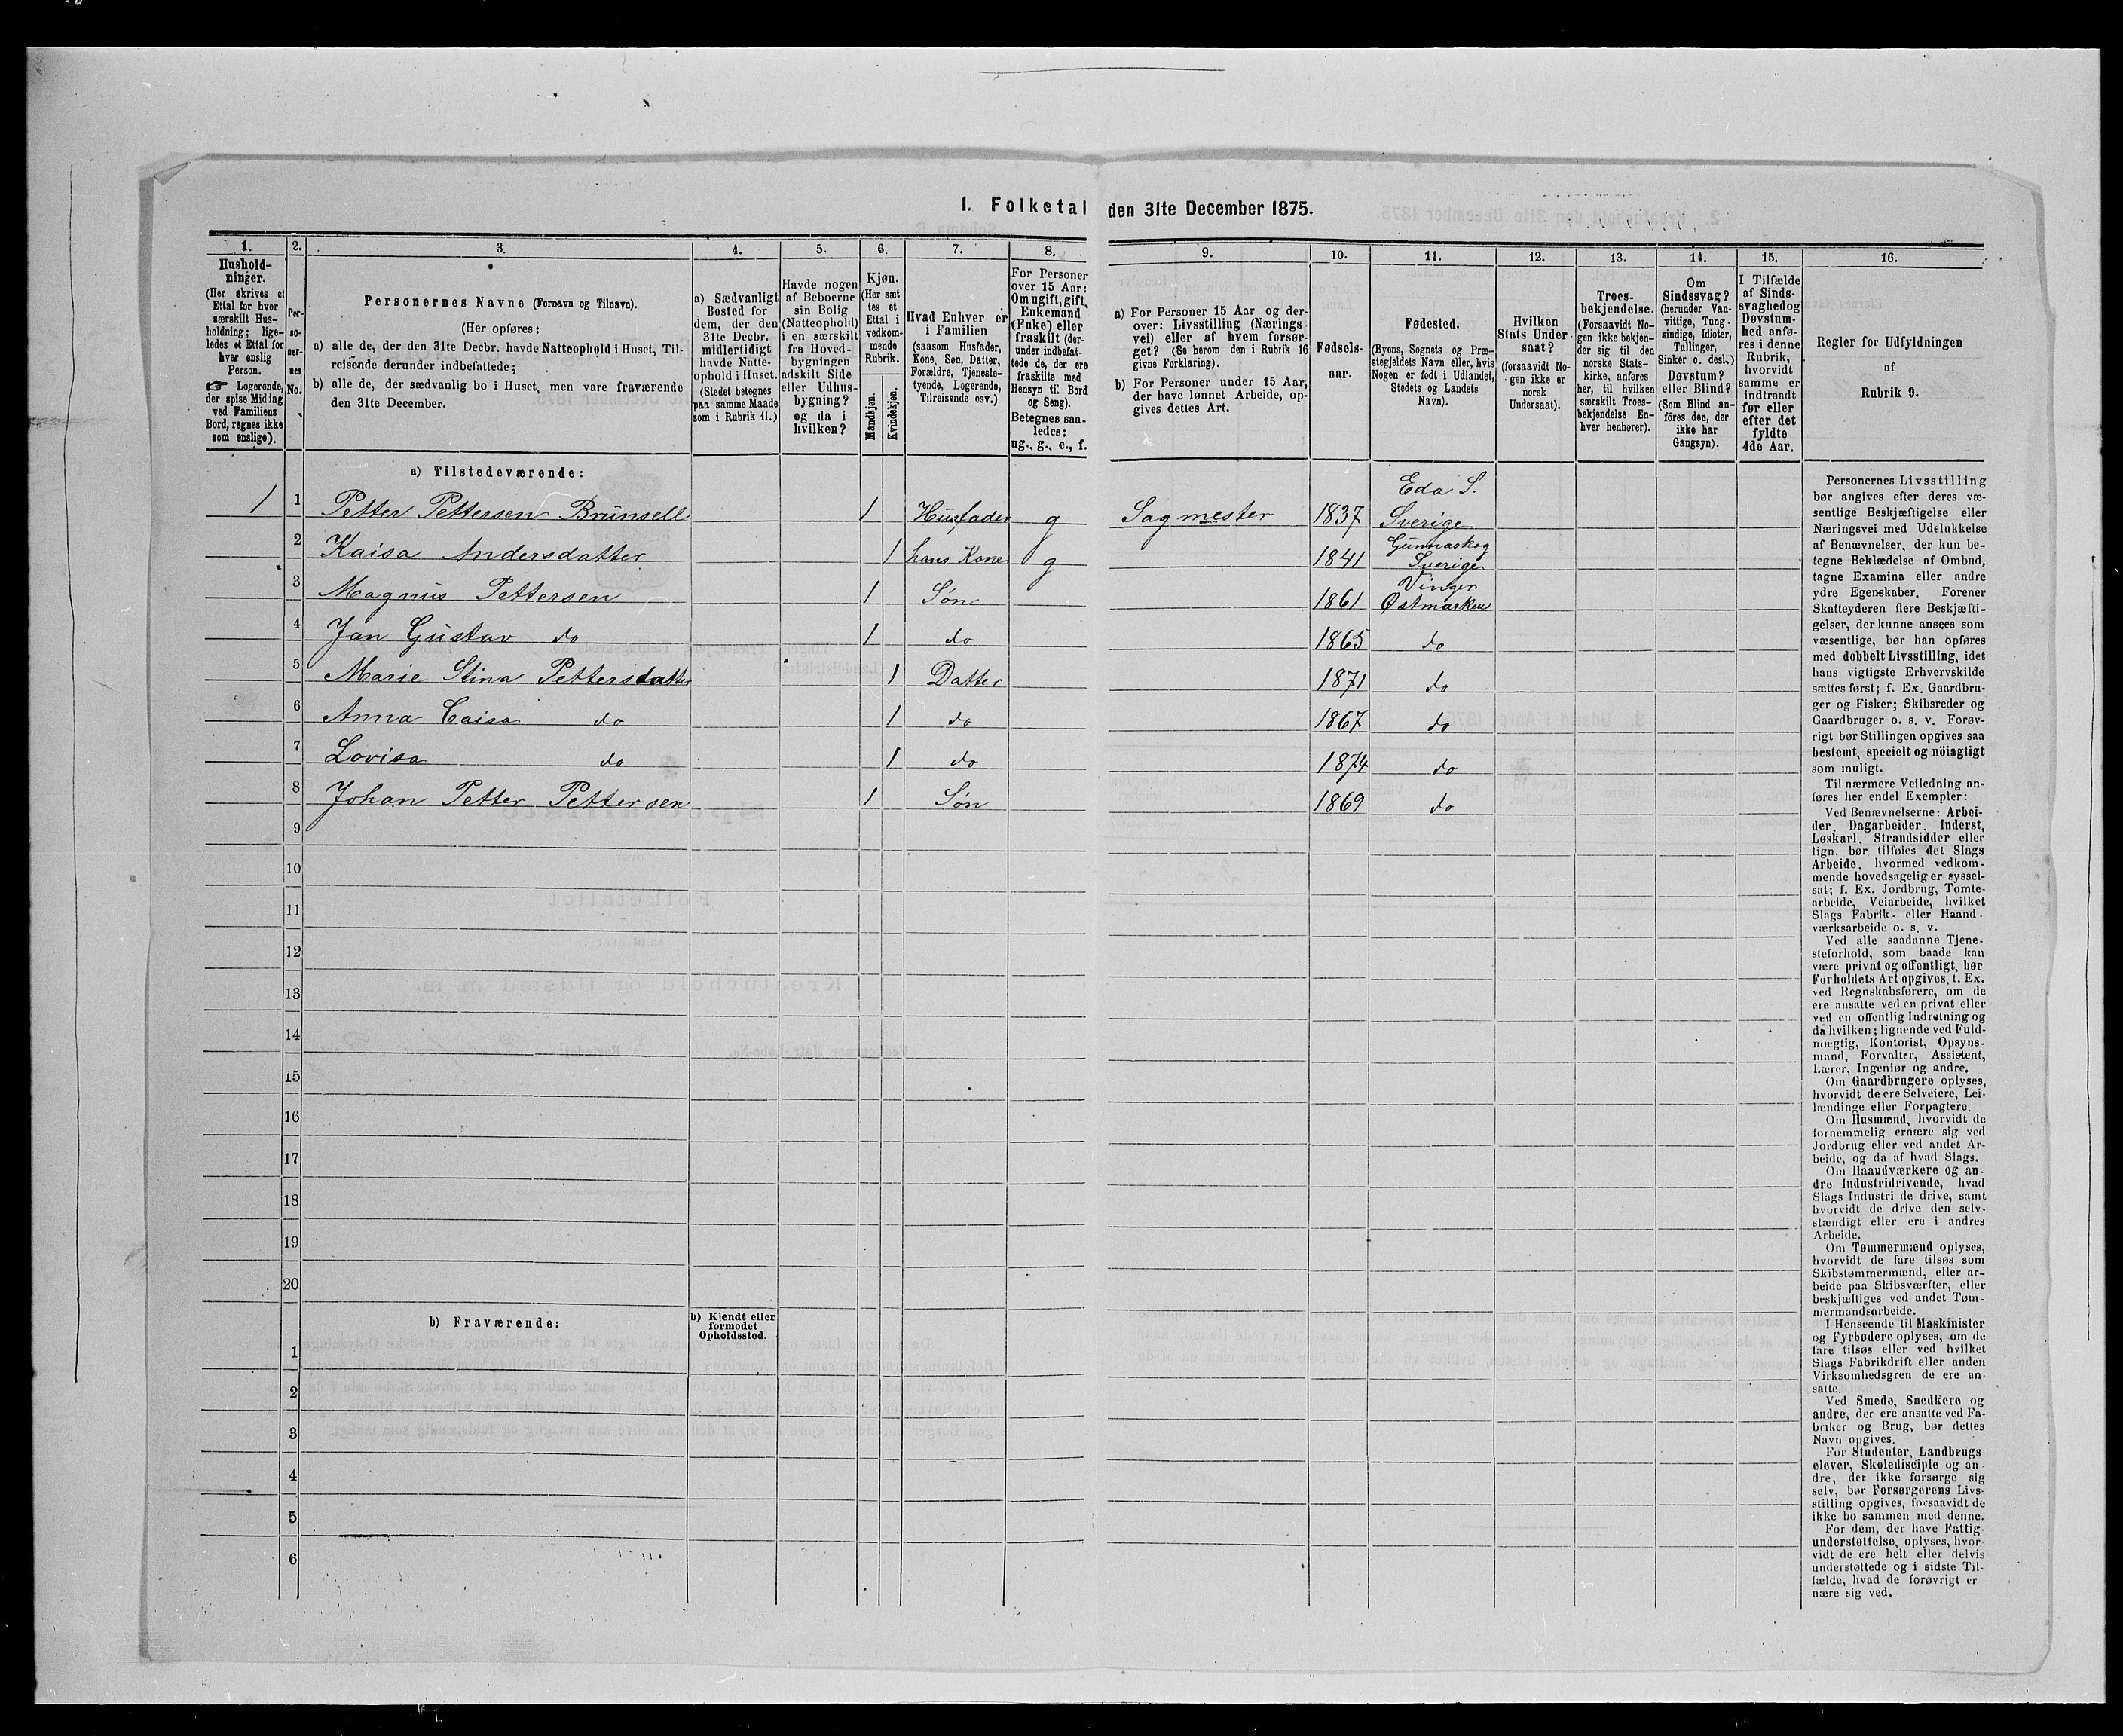 1. Folketal den 31te December 1875.
1. 2. 3. 4. 5. 6. 7. 8. 9. 10. 11. 12. 13. 14. 15. 16.
Hushold-
ninger.
(Her skrives et
Ettal for hver
særskilt Hus-
holdning; lige-
ledes et Ettal for
hver enslig
Person.
☞ Logerende,
der spise Middag
ved Familiens
Bord, regnes ikke
som enslige).
Per-
so-
ner-
nes
No.
Personernes Navne (Fornavn og Tilnavn).
(Her opføres:
a) alle de, der den 31te Decbr. havde Natteophold i Huset, Til-
reisende derunder indbefattede;
b) alle de, der sædvanlig bo i Huset, men vare fraværende
den 31te December.
a) Sædvanligt
Bosted for
dem, der den
31te Decbr.
midlertidigt
havde Natte-
ophold i Huset.
(Stedet betegnes
paa samme Maade
som i Rubrik 11.)
Havde nogen
af Beboerne
sin Bolig
(Natteophold)
i en særskilt
fra Hoved-
bygningen
adskilt Side
eller Udhus-
bygning?
og da i
hvilken?
Kjøn.
(Her sæt
tes et
Ettal i
vedkom-
mende
Rubrik.
Mandkjøn.
Kvindekjøn.
Hvad Enhver er
i Familien
(saasom Husfader,
Kone, Søn, Datter,
Forældre, Tjeneste-
tyende, Logerende,
Tilreisende osv.)
For Personer
over 15 Aar:
Om ugift, gift,
Enkemand
(Enke) eller
fraskilt (der-
under indbefat-
tede de, der ere
fraskilte med
Hensyn til Bord
og Seng).
Betegnes saa-
ledes:
ug., g., e., f.
a) For Personer 15 Aar og der-
over: Livsstilling (Nærings
vei) eller af hvem forsør-
get? (Se herom den i Rubrik 16
givne Forklaring).
b) For Personer under 15 Aar,
der have lønnet Arbeide, op-
gives dettes Art.
Fødsels-
aar.
Fødested.
(Byens, Sognets og Præ-
stegjeldets Navn eller, hvis
Nogen er født i Udlandet,
Stedets og Landets
Navn).
Hvilken
Stats Under-
saat?
(forsaavidt No-
gen ikke er
norsk
Undersaat).
Troes-
bekjendelse.
(Forsaavidt No-
gen ikke bekjen-
der sig til den
norske Stats-
kirke, anføres
her, til hvilken
særskilt Troes-
bekjendelse En-
hver henhører).
Om
Sindssvag?
(herunder Van-
vittige, Tung-
sindige, Idioter,
Tullinger,
Sinker o. desl.)
Døvstum?
eller Blind?
(Som Blind an-
føres den, der
ikke har
Gangsyn).
I Tilfælde
af Sinds-
svaghedog
Døvstum-
hed anfø-
res i denne
Rubrik,
hvorvidt
samme er
indtraadt
før eller
efter det
fyldte
4de Aar.
Regler for Udfyldningen
af
Rubrik 9.
a) Tilstedeværende:
1 1 Petter Pettersen Brunsell 1 Husfader g Sagmester 1837 Eda S. Sverige
2 Kaisa Andersdatter 1 hans Kone g 1841 Gunnaskog Sverige
3 Magnus Pettersen 1 Søn 1861 Vinger Østmarken
4 Jan Gustav do 1 do 1865 do
5 Marie Stina Pettersdatter 1 Datter 1871 do
6 Anna Caisa do 1 do 1867 do
7 Lovisa do 1 do 1874 do
8 Johan Petter Pettersen 1 Søn 1869 do
9
10
11
12
13
14
15
16
17
18
19
20
b) Fraværende:
b) Kjendt eller
formodet
Opholdssted.
1
2
3
4
5
6
Personernes Livsstilling
bør angives efter deres væ-
sentlige Beskjæftigelse eller
Næringsvei med Udelukkelse
af Benævnelser, der kun be-
tegne Beklædelse af Ombud,
tagne Examina eller andre
ydre Egenskaber. Forener
Skatteyderen flere Beskjæfti-
gelser, der kunne ansees som
væsentlige, bør han opføres
med dobbelt Livsstilling, idet
hans vigtigste Erhvervskilde
sættes først; f. Ex. Gaardbru-
ger og Fisker; Skibsreder og
Gaardbruger o. s. v. Forøv-
rigt bør Stillingen opgives saa
bestemt, specielt og nöiagtigt
som muligt.
Til nærmere Veiledning an-
føres her endel Exempler:
Ved Benævnelserne: Arbei-
der, Dagarbeider, Inderst,
Løskarl, Strandsidder eller
lign. bør tilføies det Slags
Arbeide, hvormed vedkom-
mende hovedsagelig er syssel-
sat; f. Ex. Jordbrug, Tomte-
arbeide, Veiarbeide, hvilket
Slags Fabrik- eller Haand-
værksarbeide o. s. v.
Ved alle saadanne Tjene-
steforhold, som baade kan
være privat og offentligt, bør
Forholdets Art opgives, t. Ex.
ved Regnskabsførere, om de
ere ansatte ved en privat eller
ved en offentlig Indretning og
da hvilken; lignende ved Fuld-
mægtig, Kontorist, Opsyns-
mand, Forvalter, Assistent,
Lærer, Ingeniør og andre.
Om Gaardbrugere oplyses,
hvorvidt de ere Selveiere, Lei-
lændinge eller Forpagtere.
Om Husmænd, hvorvidt de
fornemmelig ernære sig ved
Jordbrug eller ved andet Ar-
beide, og da af hvad Slags.
Om Haandværkere og an-
dre Industridrivende, hvad
Slags Industri de drive, samt
hvorvidt de drive den selv-
stændigt eller ere i andres
Arbeide.
Om Tømmermænd oplyses,
hvorvidt de fare tilsøs som
Skibstømmermænd, eller ar-
beide paa Skibsværfter, eller
beskjæftiges ved andet Tøm-
mermandsarbeide.
I Henseende til Maskinister
og Fyrbødere oplyses, om de
fare tilsøs eller ved hvilket
Slags Fabrikdrift eller anden
Virksomhedsgren de ere an-
satte.
Ved Smede, Snedkere og
andre, der ere ansatte ved Fa-
briker og Brug, bør dettes
Navn opgives.
For Studenter, Landbrugs-
elever, Skoledisciple og an-
dre, der ikke forsørge sig
selv, bør Forsørgerens Livs-
stilling opgives, forsaavidt de
ikke bo sammen med denne.
For dem, der have Fattig-
understøttelse, oplyses, hvor-
vidt de ere helt eller delvis
understøttede og i sidste Til-
fælde, hvad de forøvrigt er
nære sig ved.